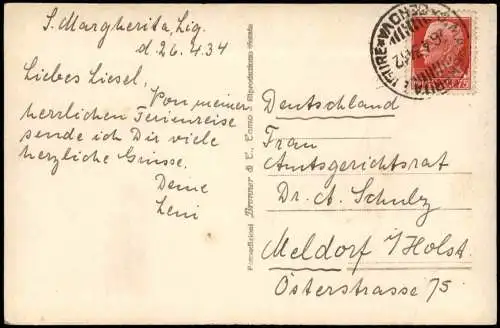 S. Margherita, Lig.
d. 26. 4. 34
Liebes Liesel,
Von meiner
herrlichen Ferienreise
sende ich Dir viele
herzliche Grüsse.
Deine
Leni
Brunner & C., Como
Riproduzione vietata
Deutschland
Frau
Amtsgerichtsrat
Dr. A. Schulz
Meldorf i/Holst.
Österstrasse 75
GENOVA
75